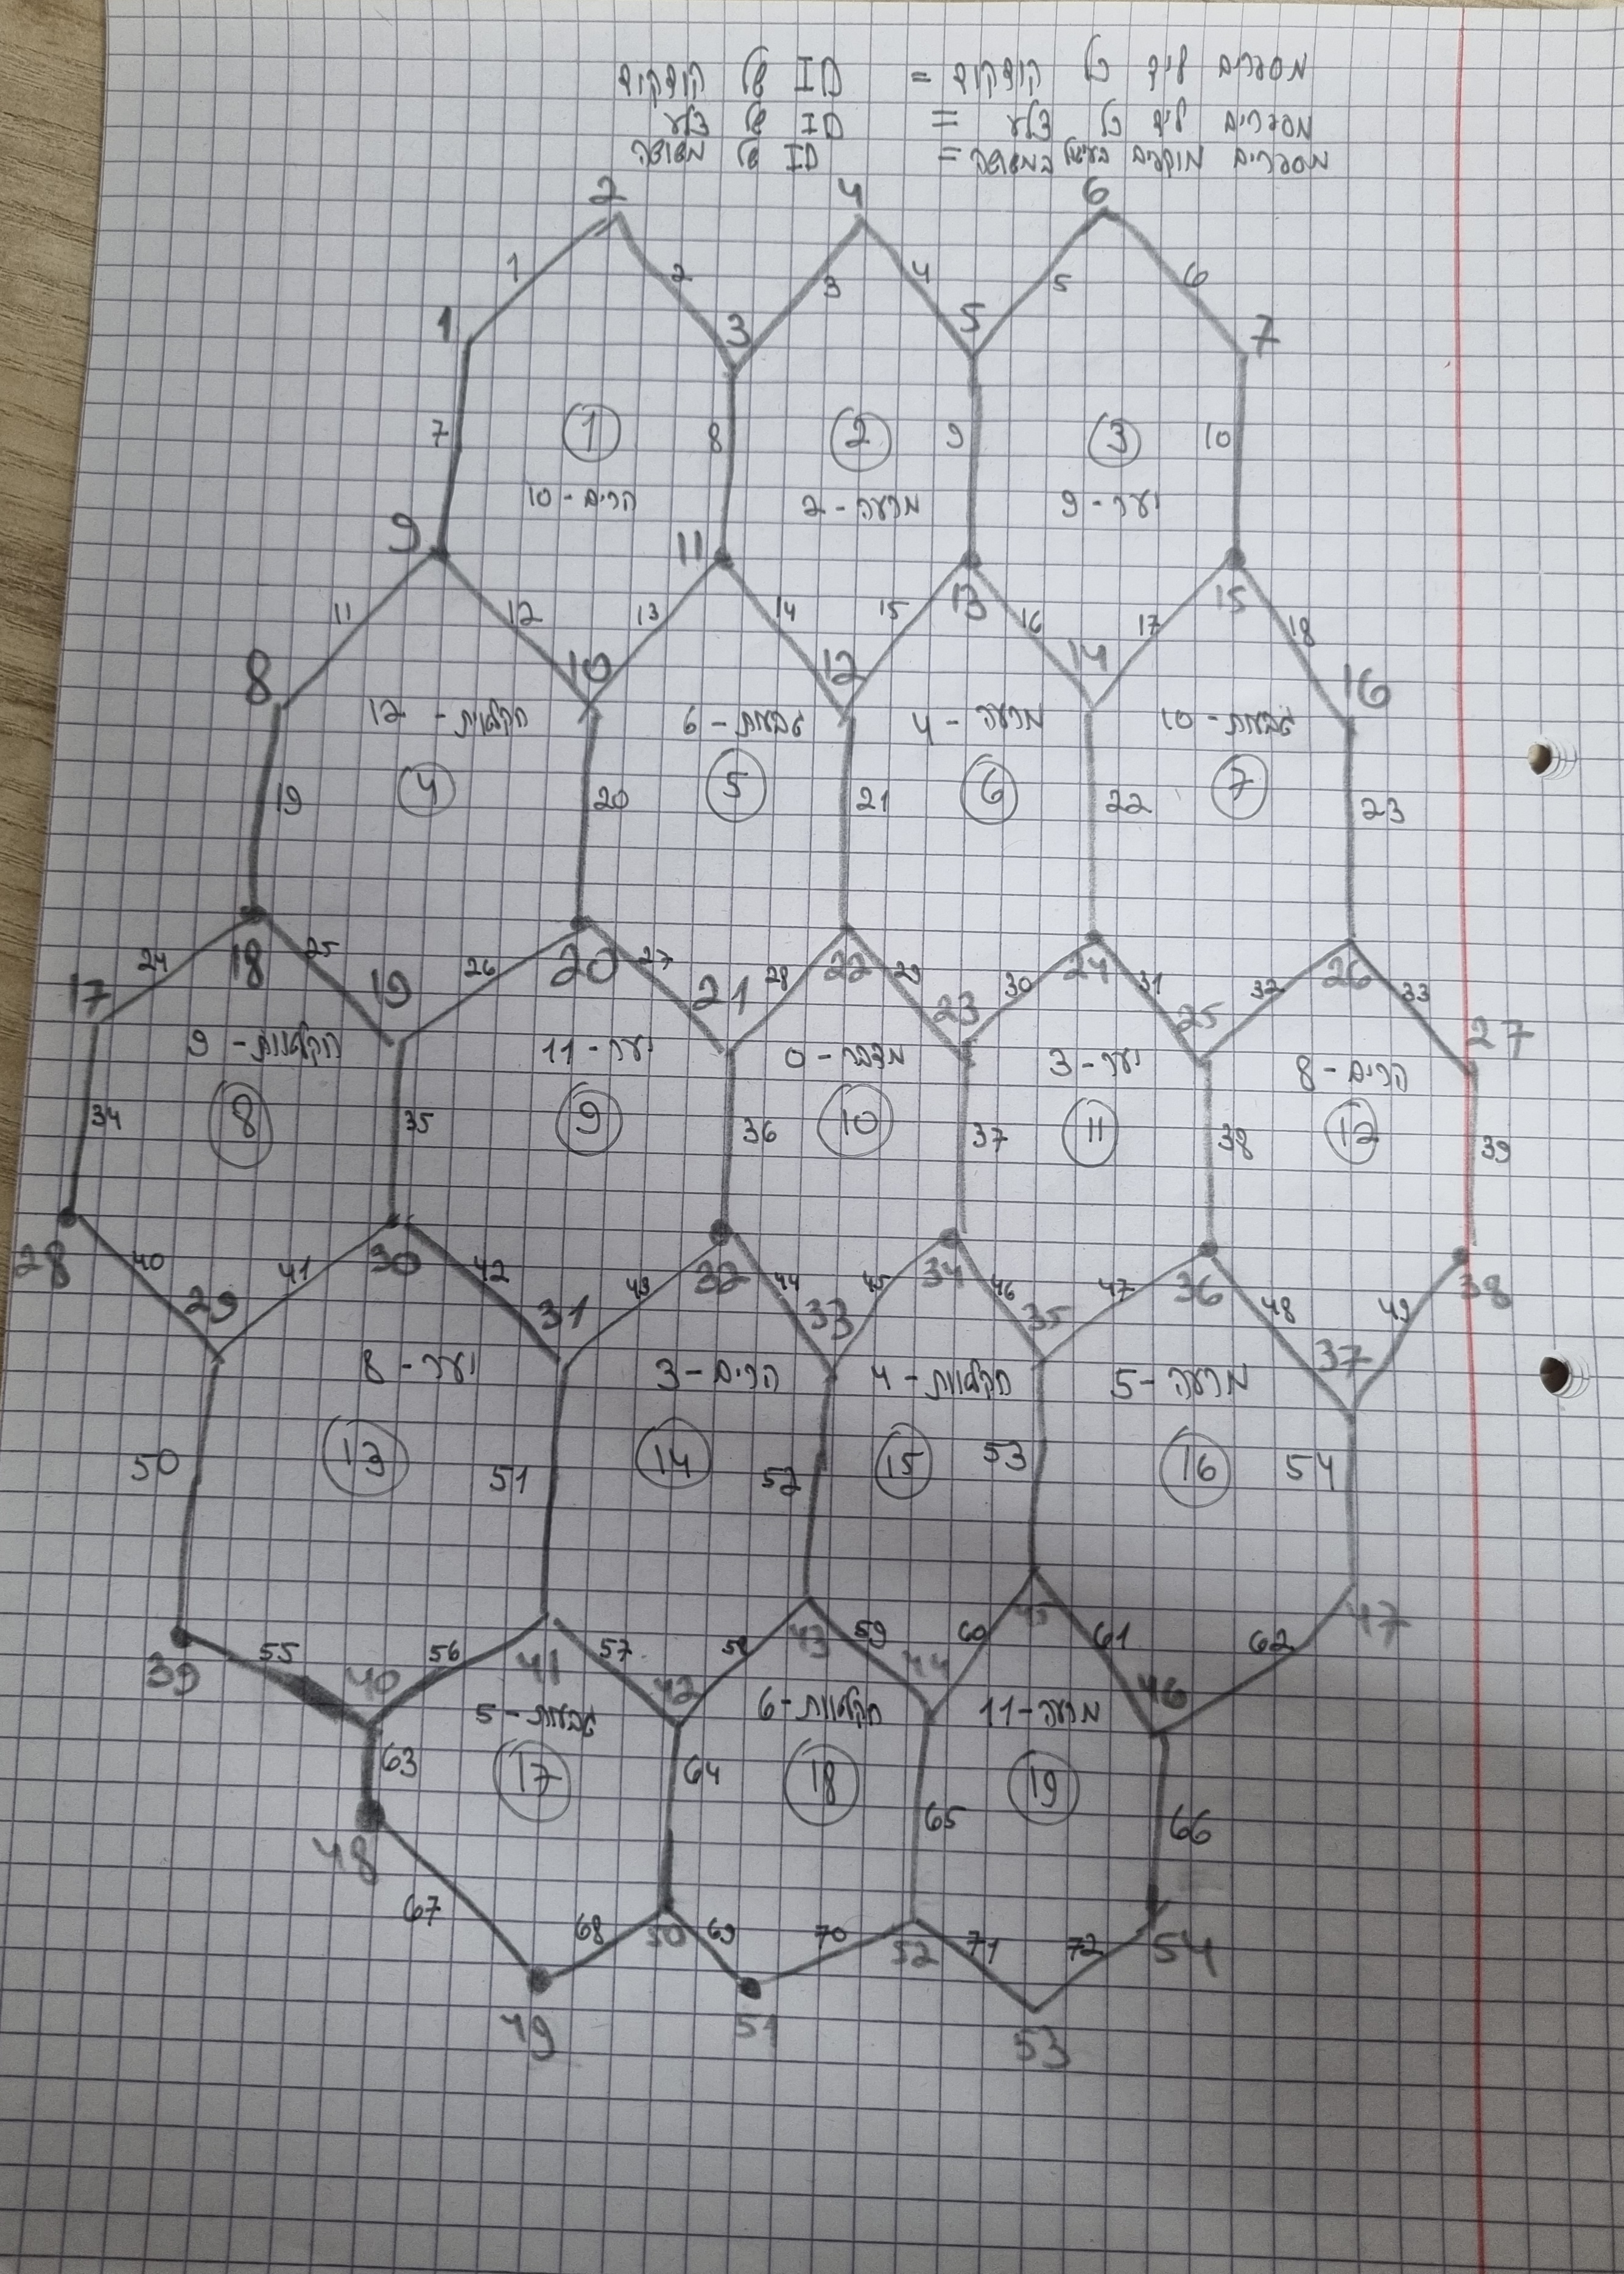 מספרים ליד כל קודקוד = ID של קודקוד
מספרים ליד כל צלע = ID של צלע
מספרים מוקפים בעיגול במשושה = ID של משושה
2 4 6
1 2 3 4 5 6
1 3 5 7
7 1 8 2 9 3 10
הרים - 10 מרעה - 2 יער - 9
9 11 13 15
11 12 13 14 15 16 17 18
8 10 12 14 16
חקלאות - 12 גבעות - 6 מרעה - 4 גבעות - 10
19 4 20 5 21 6 22 7 23
18 20 22 24 26
24 25 26 27 28 29 30 31 32 33
17 19 21 23 25 27
חקלאות - 9 יער - 11 מדבר - 0 יער - 3 הרים - 8
34 8 35 9 36 10 37 11 38 12 39
28 30 32 34 36 38
40 41 42 43 44 45 46 47 48 49
29 31 33 35 37
יער - 8 הרים - 3 חקלאות - 4 מרעה - 5
50 13 51 14 52 15 53 16 54
39 41 43 45 47
55 56 57 58 59 60 61 62
40 42 44 46
גבעות - 5 חקלאות - 6 מרעה - 11
63 17 64 18 65 19 66
48 50 52 54
67 68 69 70 71 72
49 51 53